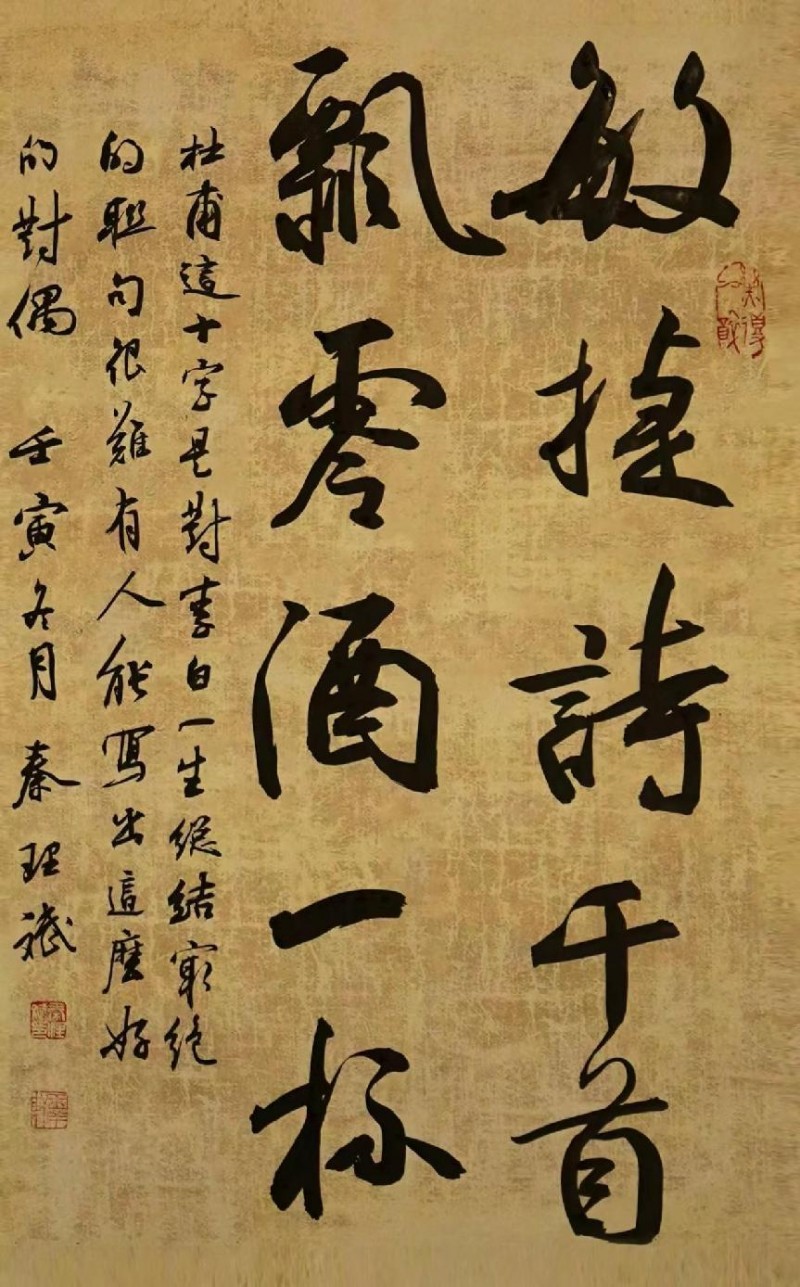 敏捷詩千首
飄零酒一杯
杜甫這十字是對李白一生総結窮絶
的聯句很難有人能寫出這麼好
的對偶　壬寅冬月秦理斌